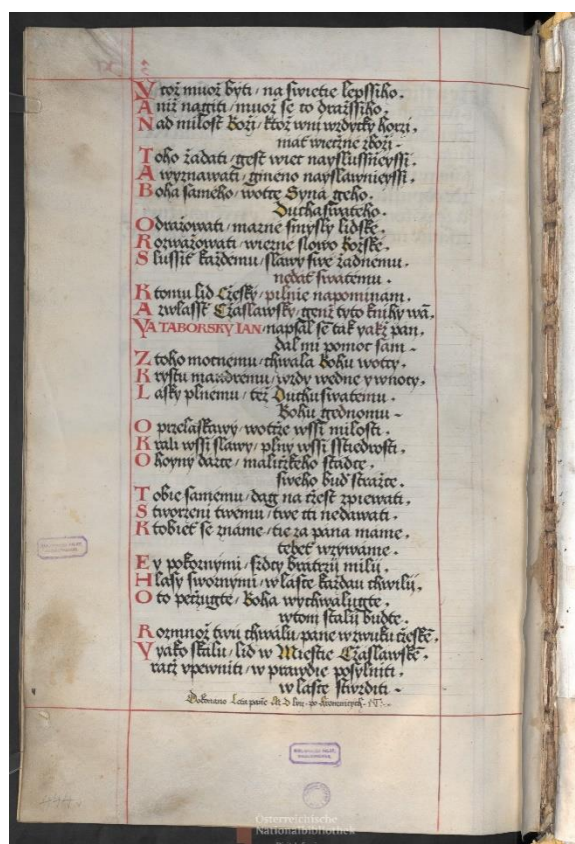 Y toż muoż byti / na swietie lepssiho.
A niż nagiti / muoż se to drażssiho.
N ad milost Boži / ktoż wni wżdycky horzi,
mat wieczne zboži.
T oho żadati / gest wiet nayslussnieyssi.
A wyznawati / gineno nayslawnieyssi.
B oha sameho / wotce Syna geho.
Ducha swateho.
O drażowati / marne smysly lidske.
R ozważowati / wierne slowo Božske.
S lussit każdemu / slawy swe żadnemu,
nedat swatemu.
K tomu lid Czesky / pilnie napominam.
A zwlasst Czaslawsky / genż tyto knihy wā.
YA TABORSKY IAN / napsal se tak yakż pan,
dal mi pomoc sam.
Z toho mocnemu / chwala Bohu wotcy.
K rystu maudremu / wżdy wedne y wnocy.
L asky plnemu / też Duchu swatemu.
Bohu gednomu.
O przelaskawy / wotże wssi milosti.
K rali wssi slawy / plny wssi sstiedrosti.
O hoyny darce / maliczkeho stadce.
sweho bud strażce.
T obie samemu / dag na czest zpiewati.
S tworzeni twemu / twe cti nedawati.
K tobiet se zname / tie za pana mame,
tebet wzywame.
E y pokornymi / srdcy bratrzij milij.
H lasy swornymi / wlasce każdau chwilij.
O to peczugte / Boha wychwalugte.
wtom stali budte.
R ozmnoż twu chwalu / pane wzwuku cżeske.
Y yako skalu / lid w Miestie Czaslawske.
racż vpewniti / w prawdie posylniti,
w lasce stwrditi.
Dokonano Leta panie
Österreichische
Nationalbibliothek